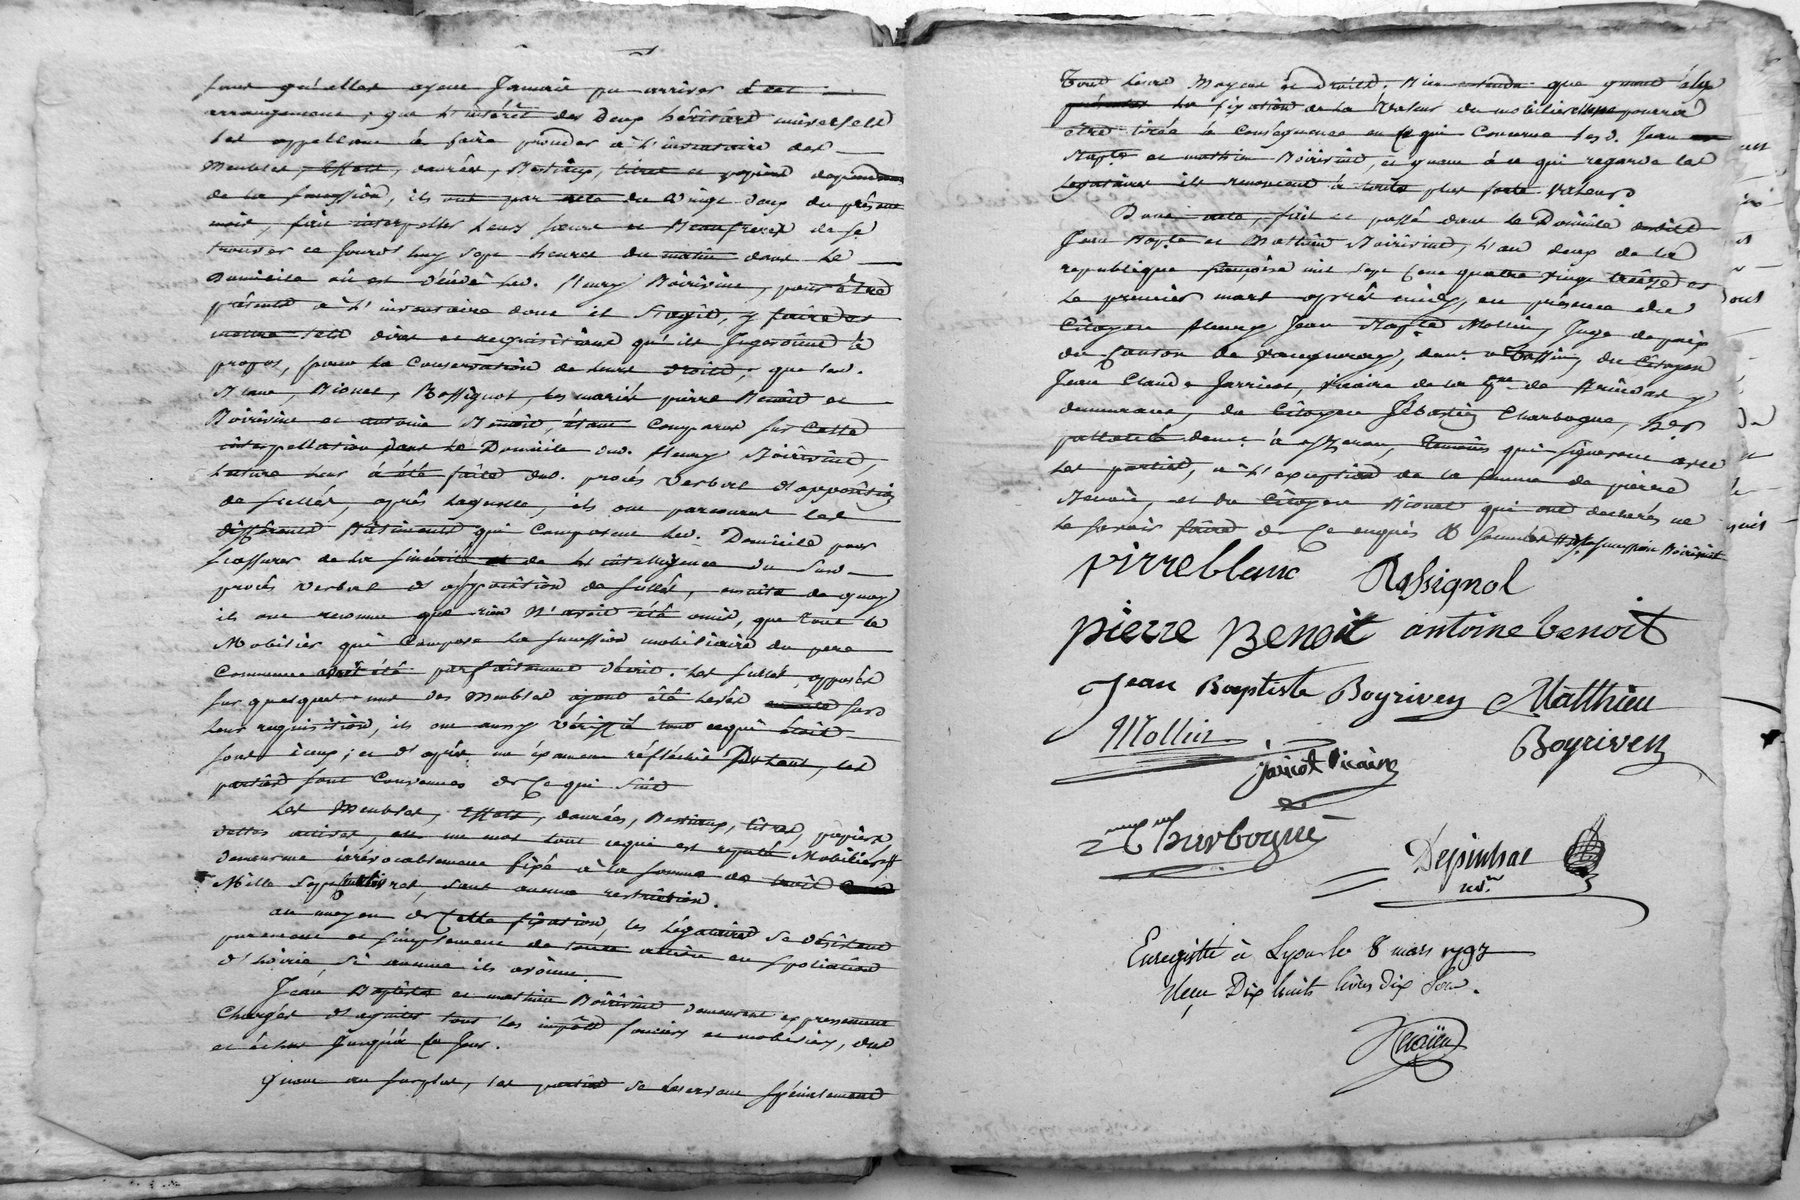 sans qu'elles ayent Jamais pu arriver à cet
arrangement, que L'intérêt des Deux héritiers universels
Les appellant à faire procéder à L'inventaire des
Meubles, Effets, denrées, Bestiaux, titres et papiers dépendants
de la succession, ils ont par acte du vingt deux du présent
mois, fait interpeller Leurs sœurs et Beaufreres de se
trouver ce Jourd'huy sept heures du matin dans Le
Domicile où est Décédé Led. fleury Boiriven, pour être
présents à L'inventaire dont il s'agit, y faire
mettre tels dires et requisitions qu'ils Jugeroient à
propos, pour la Conservation de leurs droits, que led.
Blanc, Bionet, Rossignol, Les mariés pierre Benoit et
Boirivine et antoine Benoit, étant Comparus sur Cette
interpellation Dans Le Domicile dud. fleury Boirivine,
Lecture Leur à été faite dud. procès verbal d'apposition
de scellés, après Laquelle, ils ont parcouru les
différents Bâtiments qui Composent Led. Domicile pour
s'assurer de la sincérité et de L'intelligence du Susd.
procès verbal d'apposition de scellés, ensuite de quoy
ils ont reconnu que rien N'avoit été omis, que tout le
Mobilier qui Compose la succession mobiliaire du pere
Commun avoit été parfaitement décrit. Les scellés apposés
sur quelques uns des Meubles ayant été Levés sur
Leur requisition, ils ont aussy vérifié tout ce qui étoit
sous iceux; et d'après un examen réfléchi Du tout, les
parties sont Convenues de Ce qui suit
Les Meubles, Effets, denrées, Bestiaux, titres, papiers
dettes actives, en un mot tout ce qui est reputé Mobilier #
demeurent irrévocablement fixé à la somme de trois
Mille Sept livres, sans aucune restriction.
au moyen de Cette fixation, les Légataires se désistent
purement et simplement de toute action en spoliation
d'hoirie, si aucune ils avoient
Jean Baptiste et mathieu Boirivine demeurent expressement
Chargés d'acquitter tous les impôts fonciers et mobiliers, dus
et échus Jusqu'à Ce Jour.
Quant au surplus, les parties se réservent spécialement
Tous Leurs Moyens et Droits. Bien entendu que quant à la
La fixation de la Valeur du mobilier pourra
être tirée à Conséquence en Ce qui Concerne Lesd. Jean
Bapte et mathieu Boirivine, et quant à ce qui regarde les
Légataires ils renoncent à toute plus forte valeur.
Dont acte, fait et passé dans le Domicile desdits
Jean Bapte et Mathieu Boirivine, L'an deux de la
republique françoise mil sept Cent quatre vingt treize et
Le premier mars après midy, en présence du
Citoyen fleury Jean Bapte Mollin, Juge de paix
du Canton de vaugneray, demt a Bassin, du Citoyen
Jean Claude Jarricot, vicaire de la de Brindas y
demeurant, du Citoyen Sébastien Charbogne,
demt à, témoins qui signeront avec
Les parties, à L'exception de la femme de pierre
Benoit, et du Citoyen Bionet qui ont déclarés ne
Le savoir faire de Ce enquis & sommés # de la succession Boirivine
pirre blanc Rossignol
pierre Benoit antoine benoit
Jean Baptiste Boyriven Matthieu
Boyriven
Mollin
Jaricot Vicaire
Charbogne
Depinhac
nore
Enregistré à Lyon le 8 mars 1793
Reçu Dix huits livres dix sous.